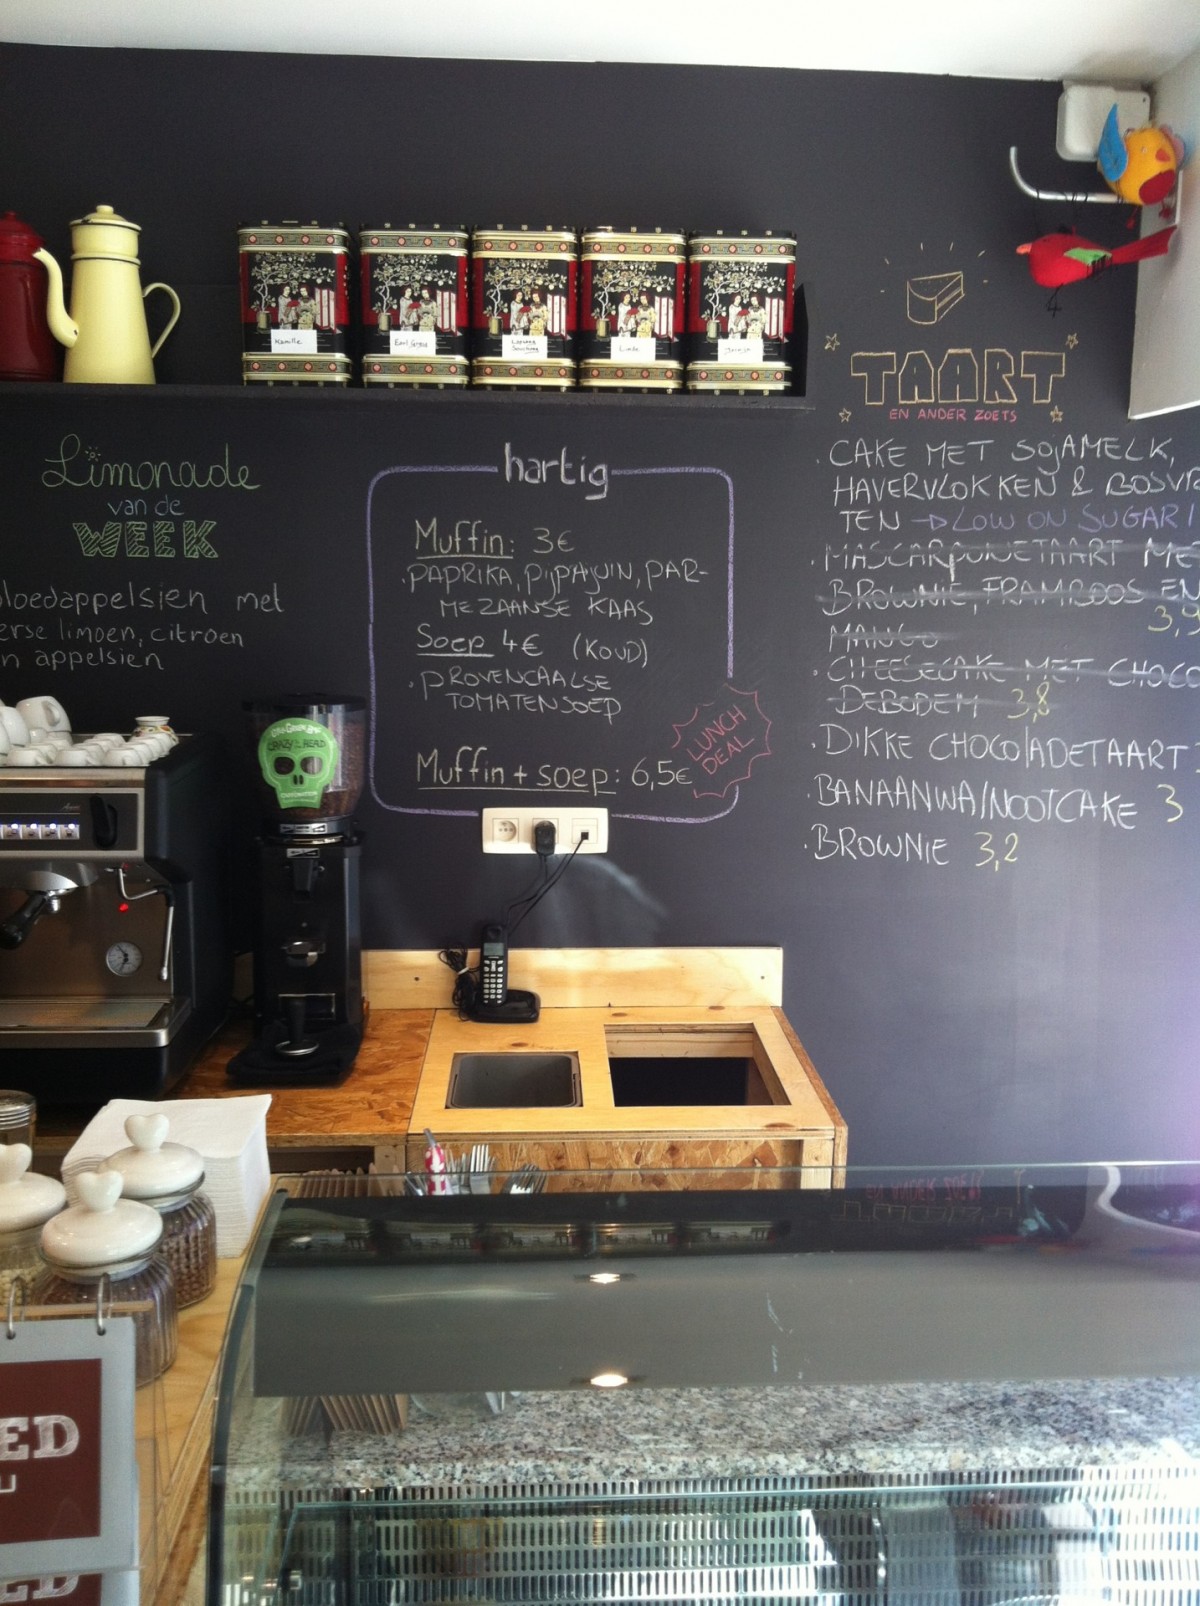 Kamille
Earl Grey
Linde
Limonade
van de
WEEK
bloedappelsien met
limoen, citroen
appelsien
hartig
Muffin: 3€
. PAPRIKA, PIJPAJUIN, PAR-
MEZAANSE KAAS
Soep 4€ (KOUD)
. PROVENCAALSE
TOMATENSOEP
Muffin + soep: 6,5€
LUNCH
DEAL
TAART
EN ANDER ZOETS
. CAKE MET SOJAMELK,
HAVERVLOKKEN & BOSVR
TEN → LOW ON SUGAR!
. MASCARPONETAART MET
BROWNIE, FRAMBOOS EN
MANGO 3,9
. CHEESECAKE MET CHOCO
DEBODEM 3,8
. DIKKE CHOCOLADETAART
. BANAANWALNOOTCAKE 3
. BROWNIE 3,2
CRAZY IN THE HEAD
ED